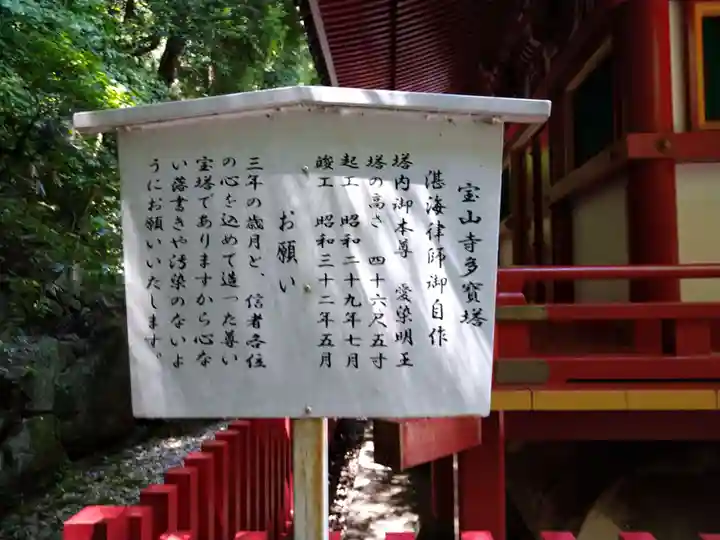 宝山寺多寳塔
湛海律師御自作
塔内御本尊　愛染明王
塔の高さ　四十六尺五寸
起工　昭和二十九年七月
竣工　昭和三十二年五月
お願い
三年の歳月と、信者各位
の心を込めて造った尊い
宝塔でありますから心な
い落書きや汚染のないよ
うにお願いいたします。